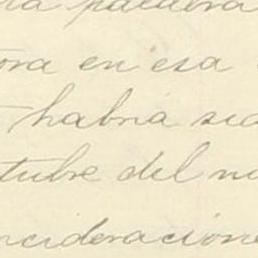 palabra
ora en esa
habria sid
tubre del
nsideracione